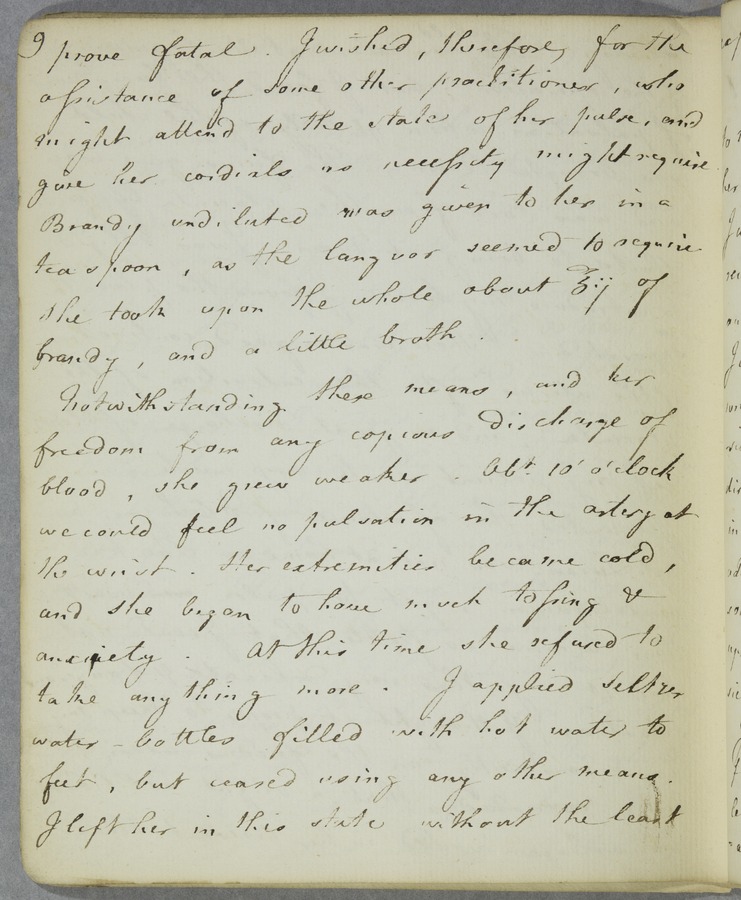 9 prove fatal. I wished, therefore, for the
assistance of some other practitioner, who
might attend to the state of her pulse, and
give her cordials as necessity might require.
Brandy undiluted was given to her in a
tea spoon, as the languor seemed to require
she took upon the whole about ℥ij of
brandy, and a little broth.
Notwithstanding these means, and her
freedom from any copious discharge of
blood, she grew weaker. Abt. 10 o'clock
we could feel no pulsation in the artery at
the wrist. Her extremities became cold,
and she began to have much tossing &
anxiety. At this time she refused to
take any thing more. I applied seltzer
water-bottles filled with hot water to
feet, but ceased using any other means.
I left her in this state without the least